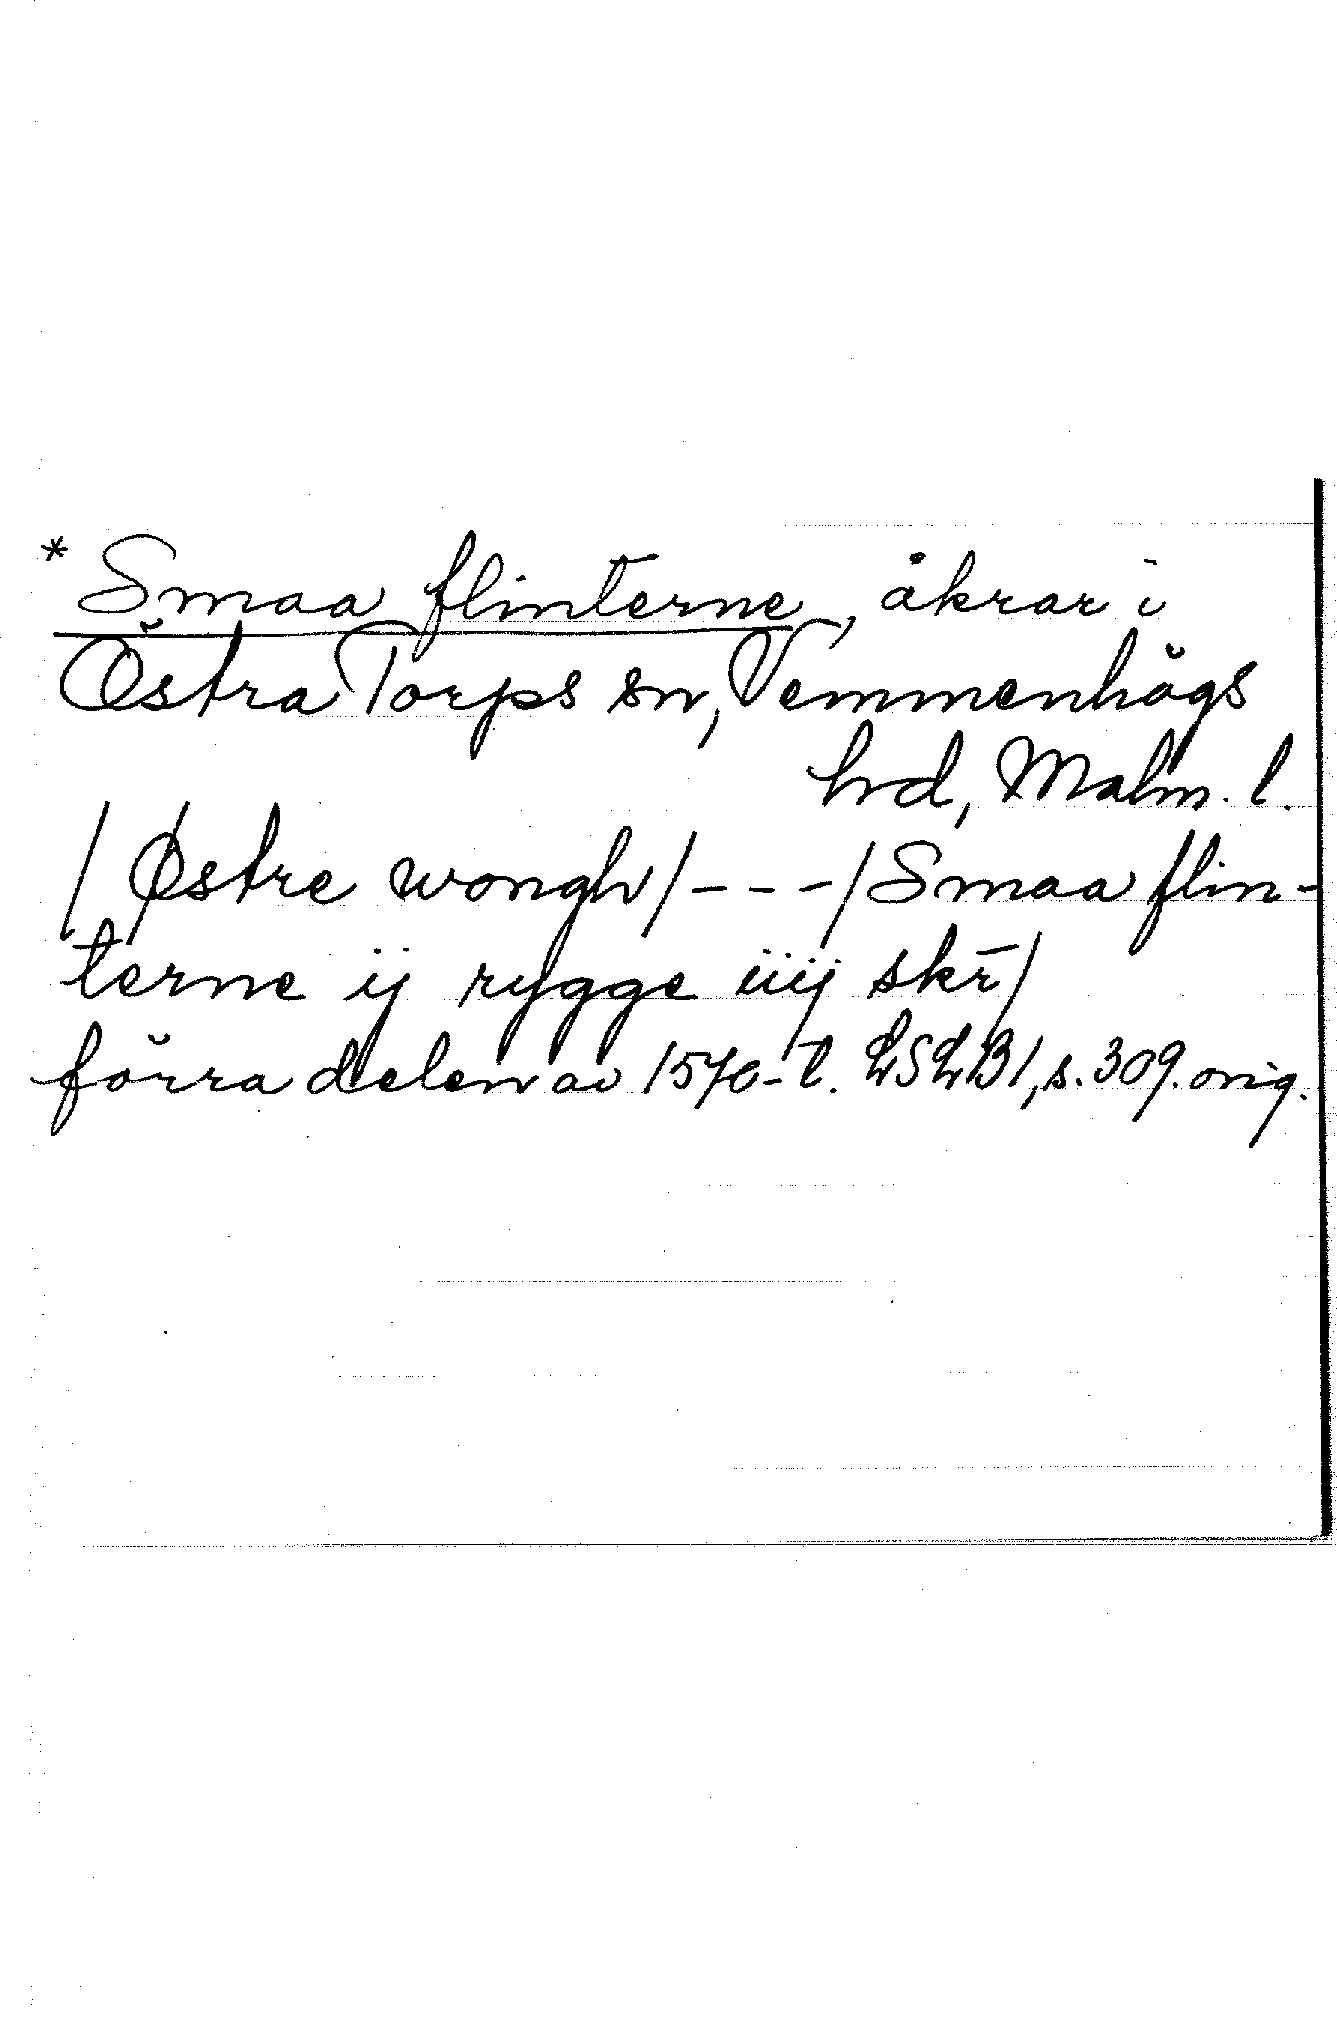 * Smaa flinterne, åkrar i
Östra Torps sn, Vemmenhögs
hd, Malm. l.
/ Østre wongh/---/Smaa flin-
terne ij rygge iiij skr̄/
förra delen av 1570-t. LSLB1, s. 309. orig.